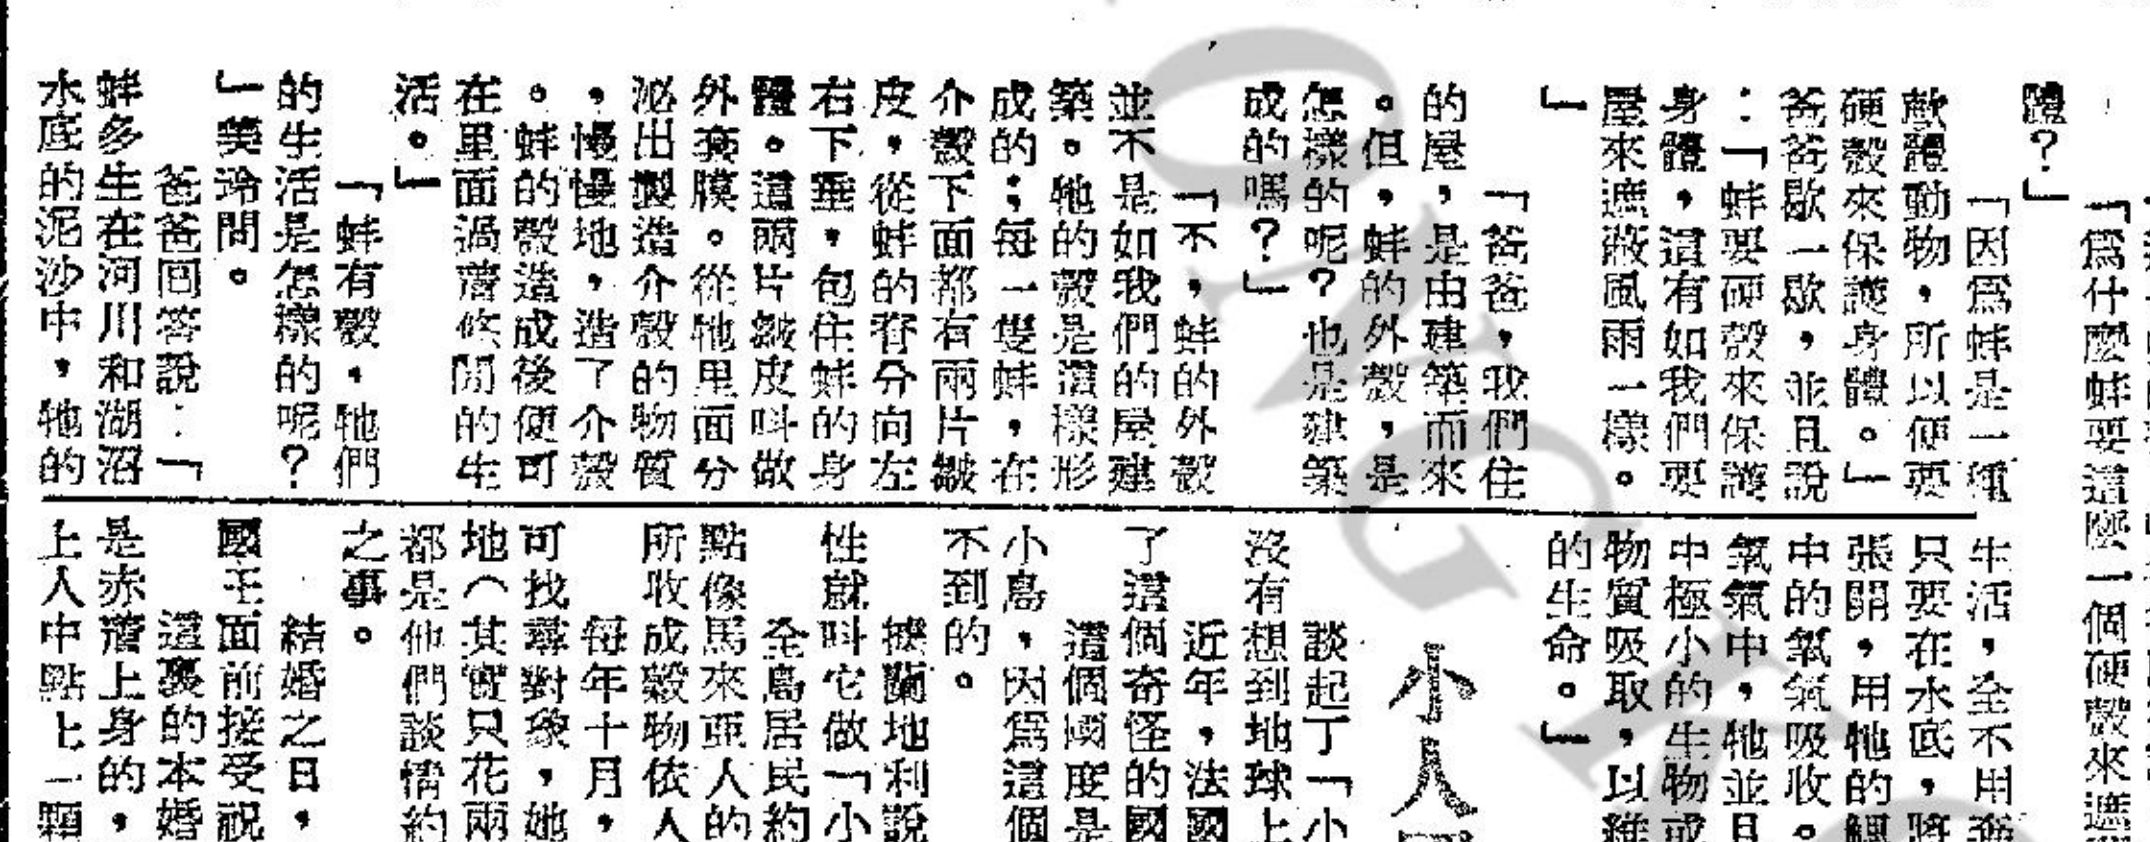 「爲什麼蚌要這麼一個硬殼來遮
體？」
「因爲蚌是一種
軟體動物，所以便要
硬殼來保護身體。」
爸爸歇一歇，並且說
：「蚌要硬殼來保護
身體，這有如我們要
屋來遮蔽風雨一樣。
」
「爸爸，我們住
的屋，是由建築而來
。但，蚌的外殼，是
怎樣的呢？也是建築
成的嗎？」
「不，蚌的外殼
並不是如我們的屋建
築。牠的殼是這樣形
成的；每一隻蚌，在
介殼下面都有兩片皺
皮，從蚌的脊分向左
右下垂，包住蚌的身
體。這兩片皺皮叫做
外套膜。從牠里面分
泌出製造介殼的物質
，慢慢地，造了介殼
。蚌的殼造成後便可
在里面過着悠閒的生
活。」
「蚌有殼，牠們
的生活是怎樣的呢？
」美玲問。
爸爸回答說：「
蚌多生在河川和湖沼
水底的泥沙中，牠的
生活，全不用
只要在水底，將
張開，用牠的鰓
中的氧氣吸收。
氧氣中，牠並且
中極小的生物或
物質吸取，以維
的生命。」
小人國
談起了「小
沒有想到地球上
近年，法國
了這個奇怪的國
這個國度是
小島，因爲這個
不到的。
據蘭地利說
性就叫它做「小
全島居民約
點像馬來亞人的
所收成穀物依人
每年十月，
可找尋對象，她
地（其實只花兩
都是他們談情約
之事。
結婚之日，
國王面前接受祝
這裏的本婚
是赤着上身的，
上人中點上一顆
ONG K